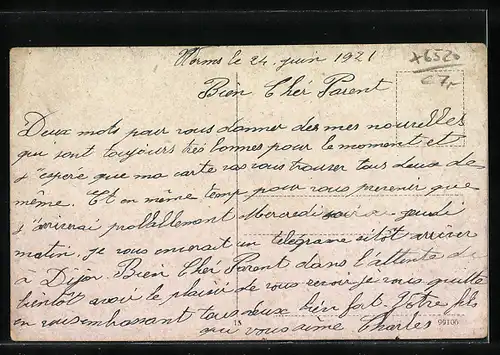 Worms le 24. juin 1921
+6520
C7,-
Bien Chér Parent
Deux mots pour vous donner des mes nouvelles
qui sont toujours très bonnes pour le moment et
j'espère que ma carte vas vous trouver tous deux de
même. Et en même temp pour vous prevenir que
j'arriverai probablement Mercredi soir ou jeudi
matin, je vous enverait un télégrame sitôt arriver
à Dijon. Bien Chér Parent dans l'attente de
bientôt avoir le plaisir de vous revoir je vous quitte
en vous embrassant tous deux bien fort Vôtre fils
qui vous aime Charles
15
99106